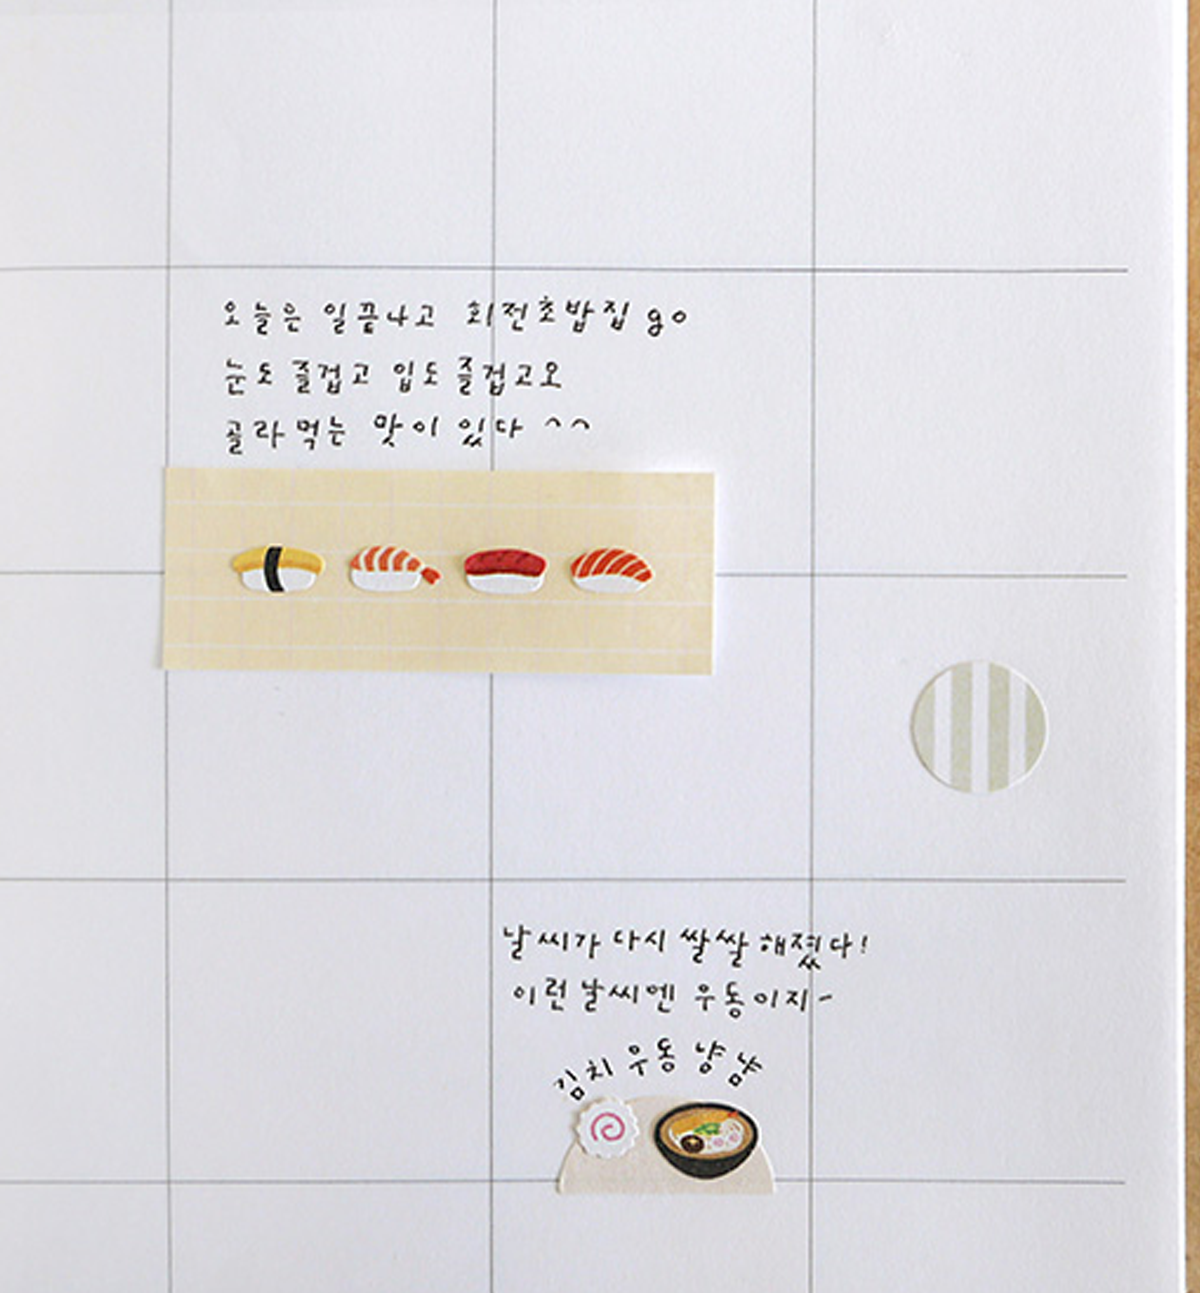 오늘은 일끝나고 회전초밥집 go
눈도 즐겁고 입도 즐겁고오
골라먹는 맛이 있다 ^^
날씨가 다시 쌀쌀해졌다!
이런 날씨엔 우동이지~
김치 우동 냠냠